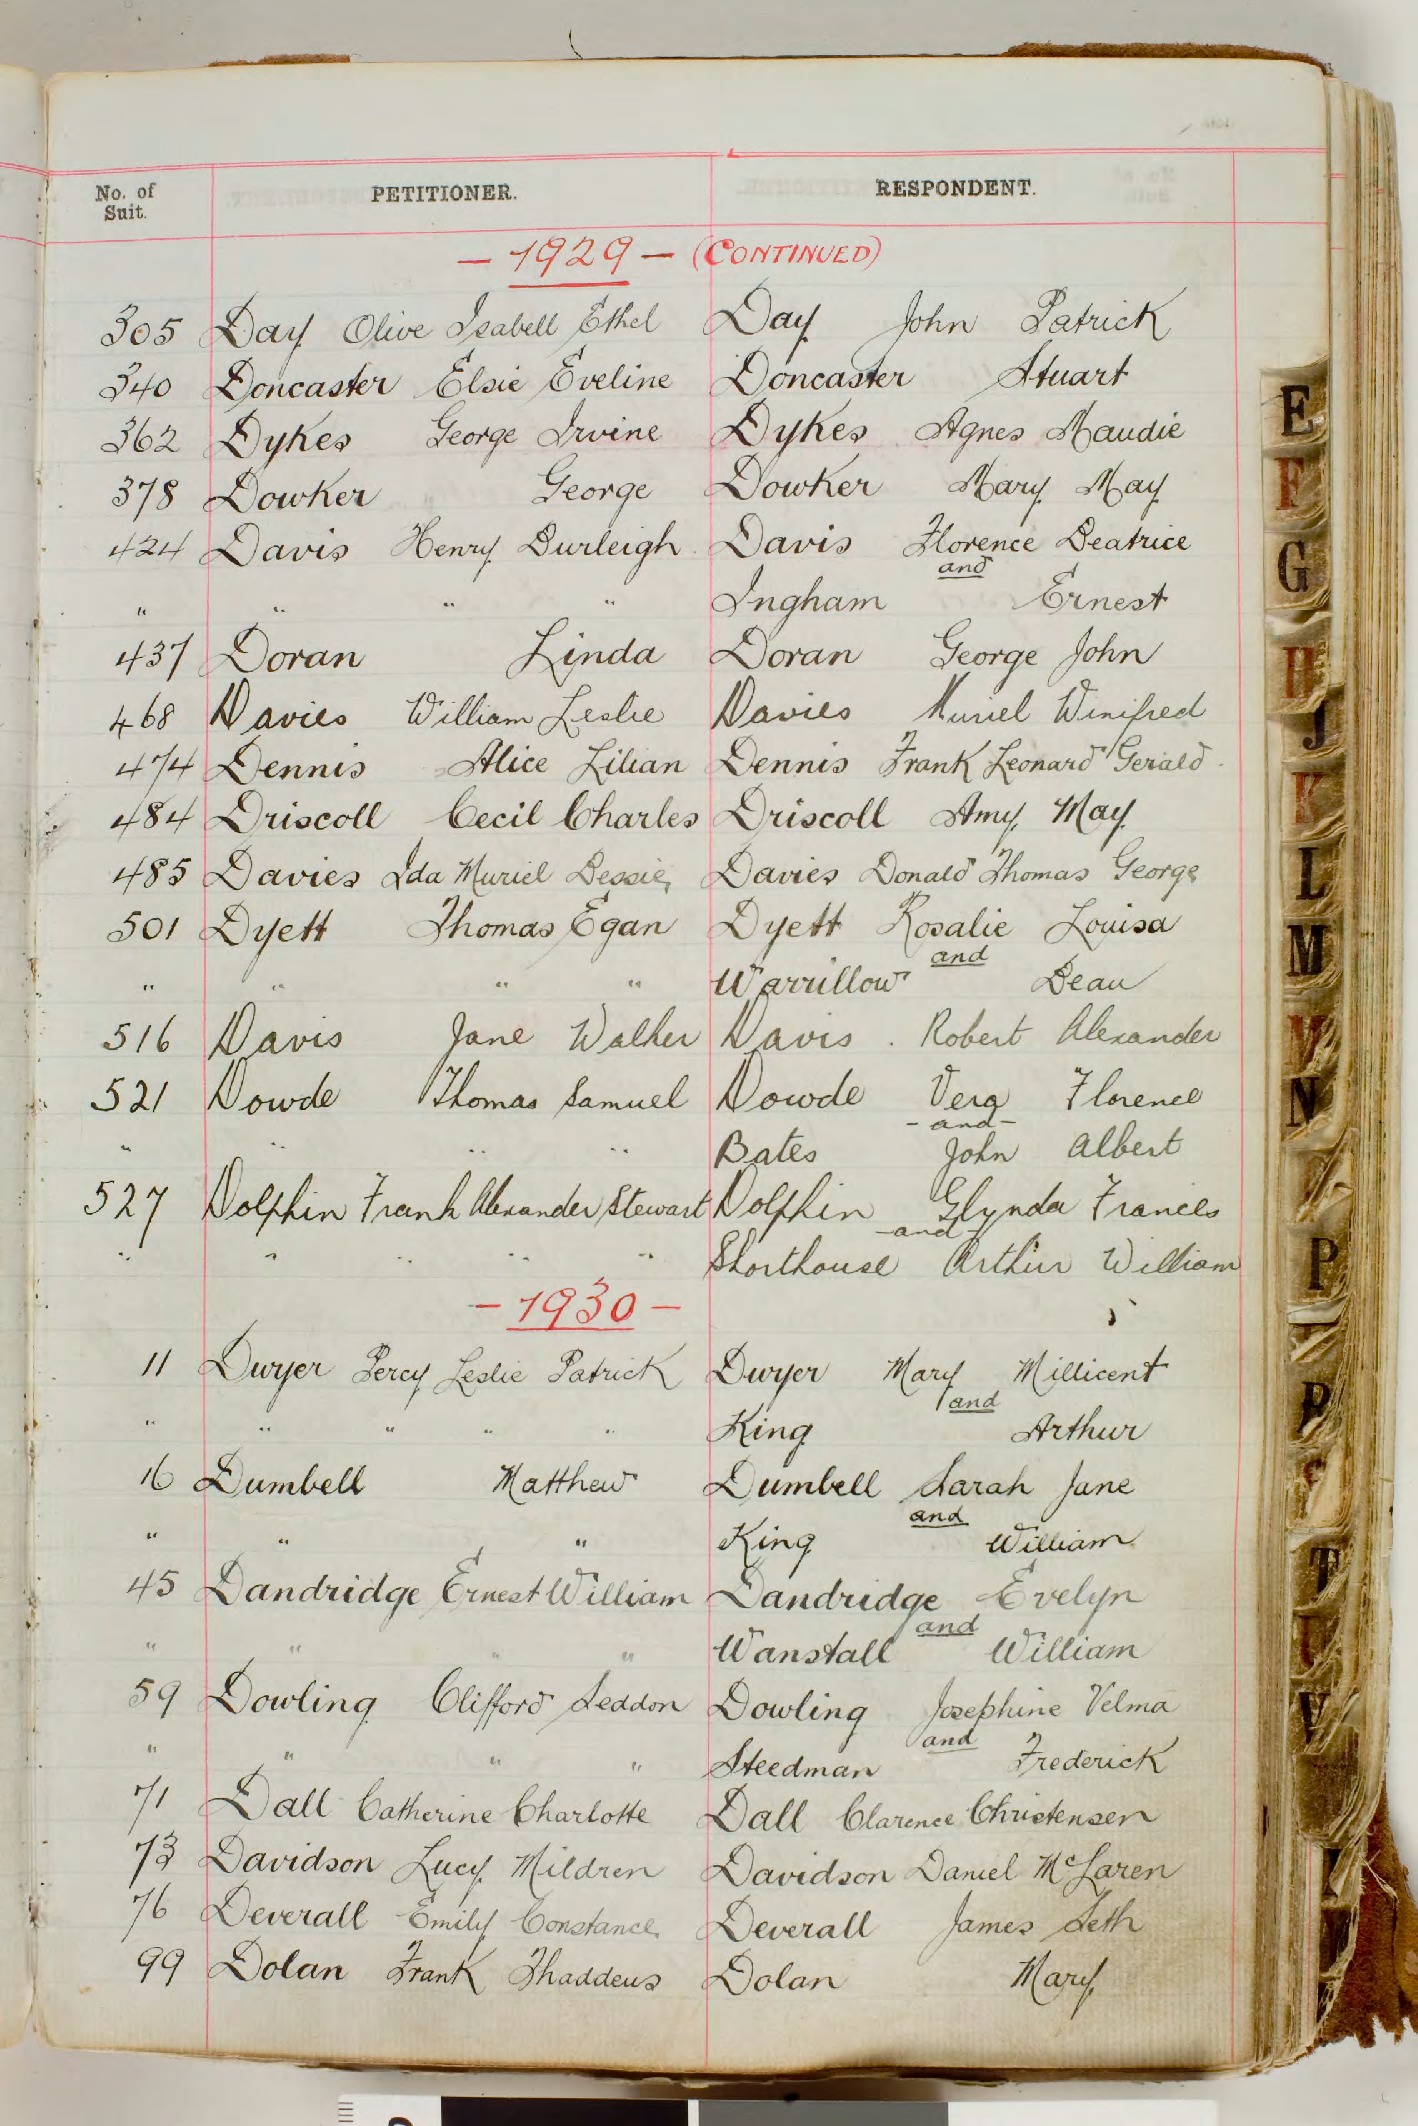 No. of Suit. PETITIONER. RESPONDENT.
— 1929 — (CONTINUED)
305 Day Olive Isabell Ethel Day John Patrick
340 Doncaster Elsie Eveline Doncaster Stuart
362 Dykes George Irvine Dykes Agnes Maudie
378 Dowker George Dowker Mary May
424 Davis Henry Burleigh Davis Florence Beatrice
and
" " " " Ingham Ernest
437 Doran Linda Doran George John
468 Davies William Leslie Davies Muriel Winifred
474 Dennis Alice Lilian Dennis Frank Leonard Gerald
484 Driscoll Cecil Charles Driscoll Amy May
485 Davies Ida Muriel Bessie Davies Donald Thomas George
501 Dyett Thomas Egan Dyett Rosalie Louisa
and
" " " " Warrillow Beau
516 Davis Jane Walker Davis Robert Alexander
521 Dowde Thomas Samuel Dowde Vera Florence
- and -
" " " " Bates John Albert
527 Dolphin Frank Alexander Stewart Dolphin Glynda Frances
- and -
" " " " " Shorthouse Arthur William
— 1930 —
11 Dwyer Percy Leslie Patrick Dwyer Mary Millicent
and
" " " " " King Arthur
16 Dumbell Matthew Dumbell Sarah Jane
and
" " " King William
45 Dandridge Ernest William Dandridge Evelyn
and
" " " " Wanstall William
59 Dowling Clifford Seddon Dowling Josephine Velma
and
" " " " Steedman Frederick
71 Dall Catherine Charlotte Dall Clarence Christensen
73 Davidson Lucy Mildren Davidson Daniel McLaren
76 Deverall Emily Constance Deverall James Seth
99 Dolan Frank Thaddeus Dolan Mary
E
F
G
H
J
K
L
M
N
P
T
U
V